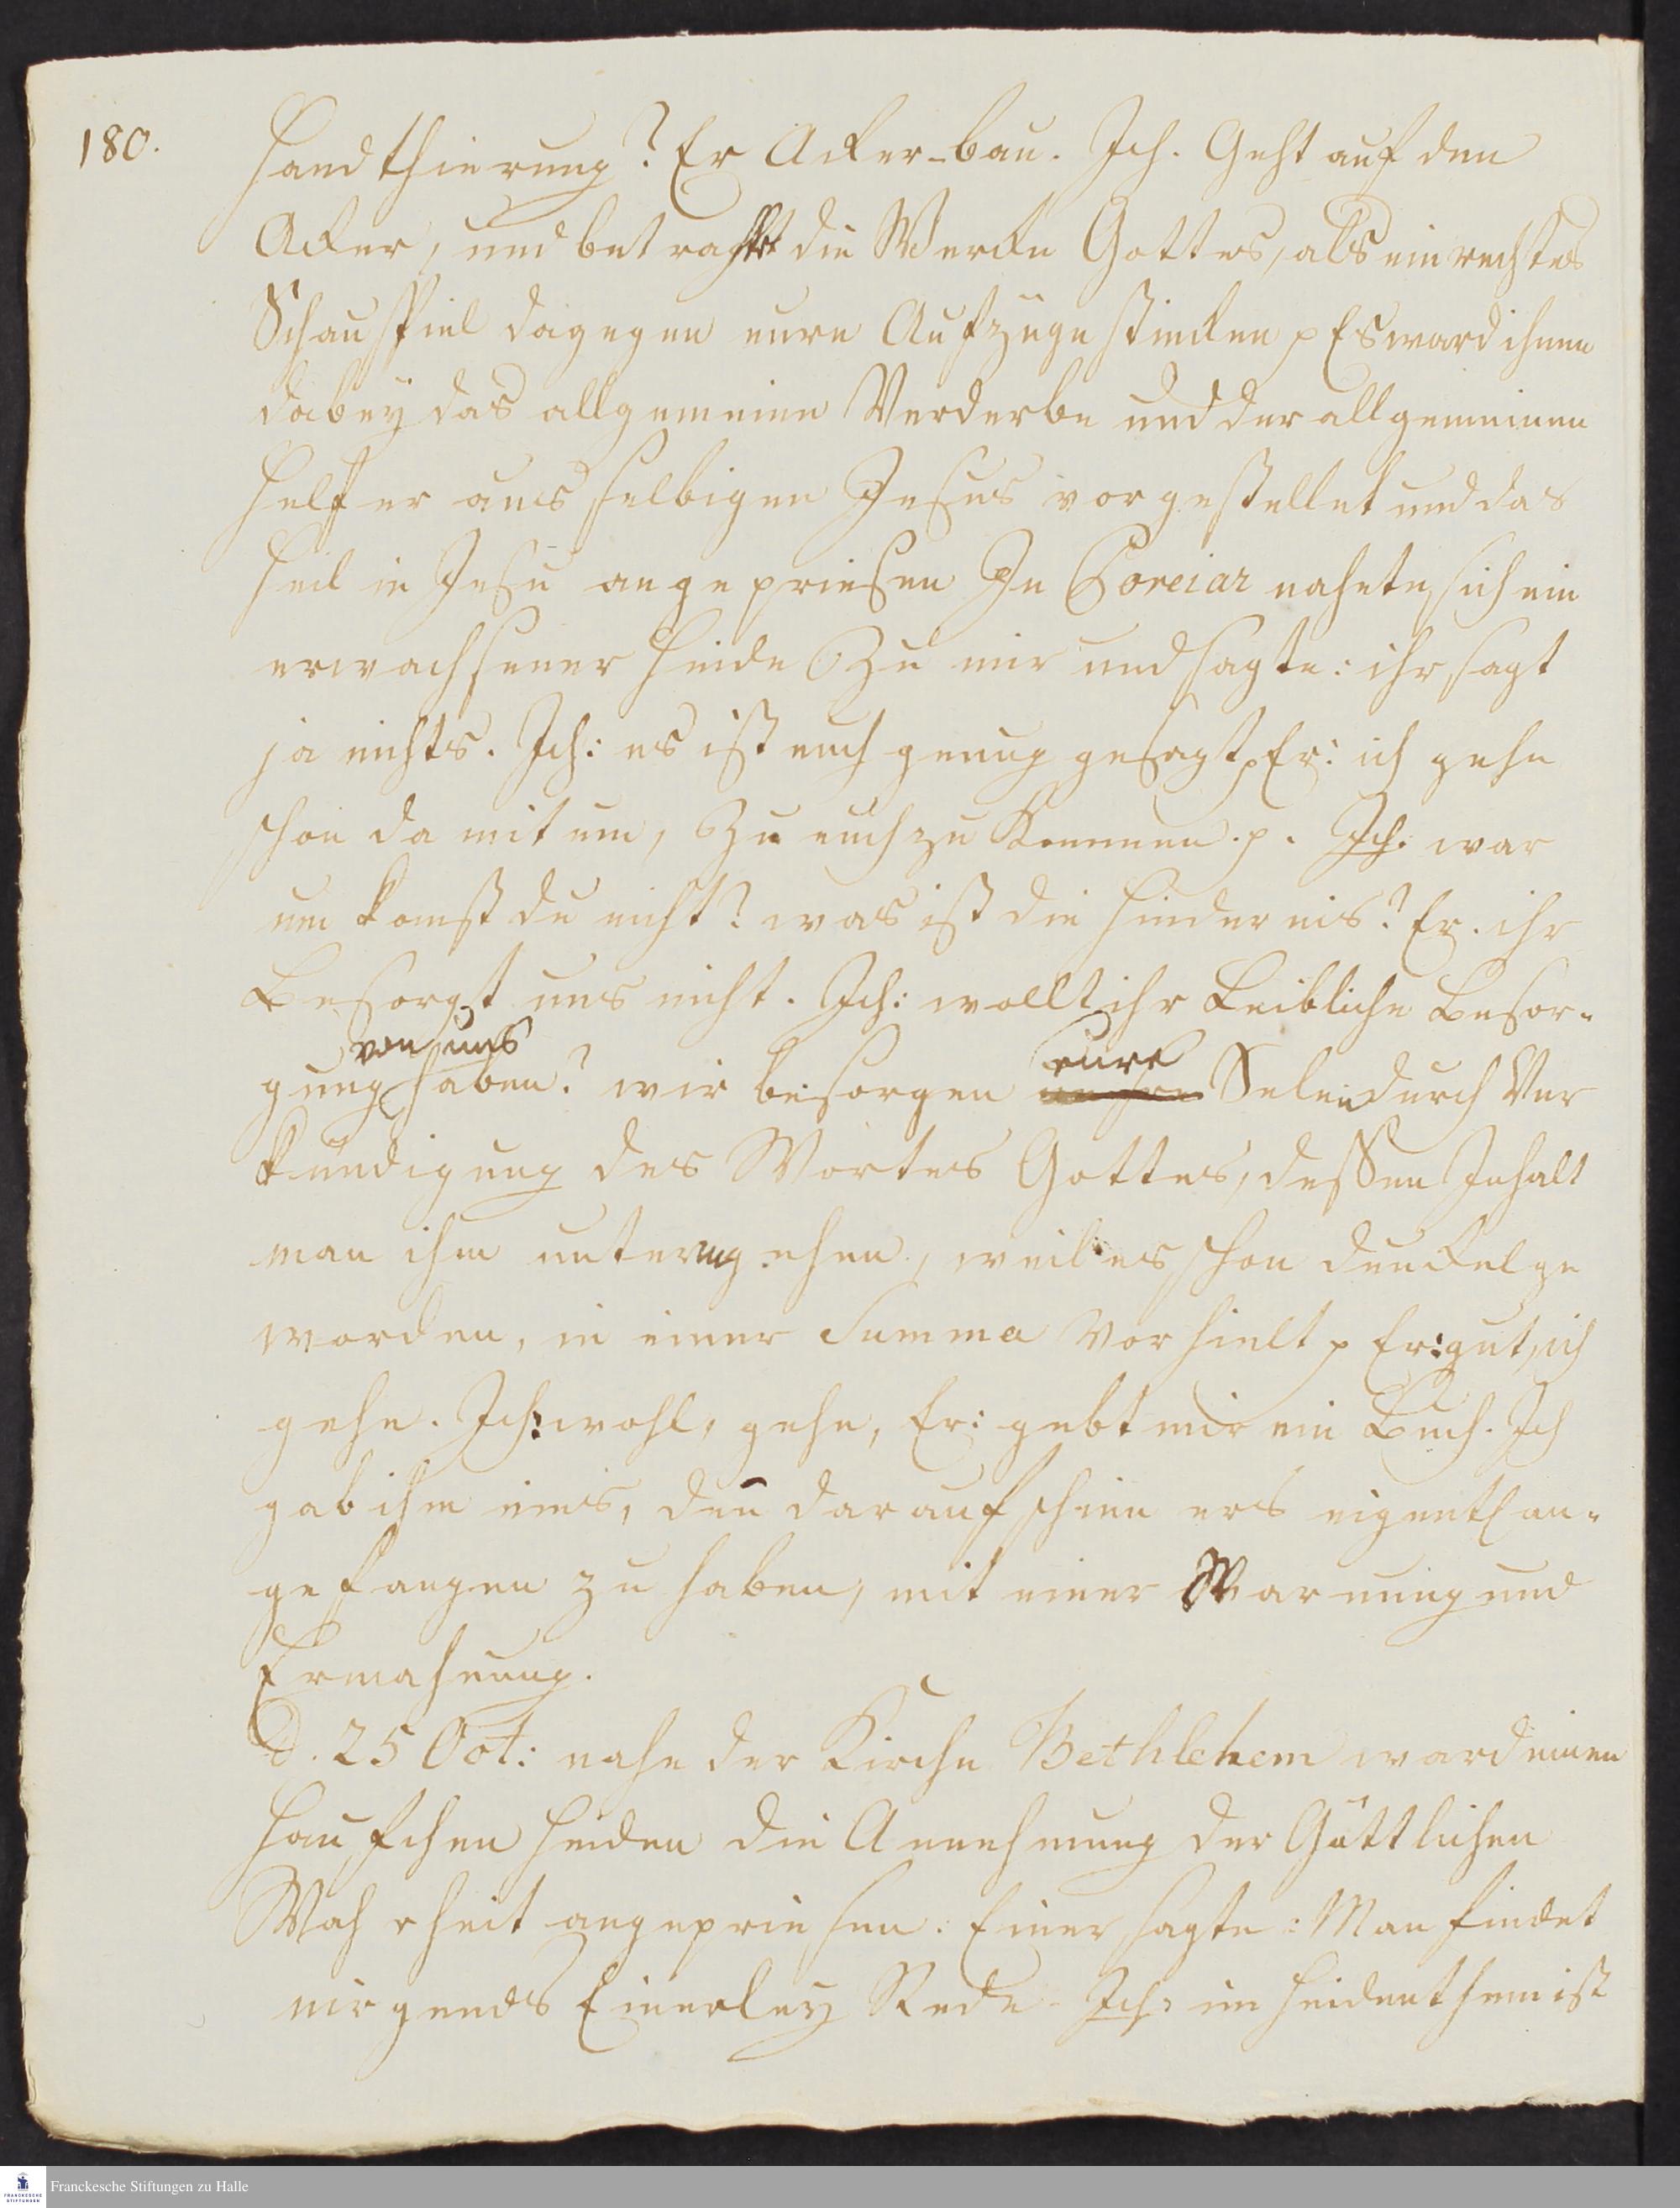 180.
Handthierung? Er Acker-bau. Ich. Geht auf den
Acker, und betrachtet die Wercke Gottes, als ein rechtes
Schauspiel dagegen eure Aufzüge stincken p Es ward ihnen
dabey das allgemeine Verderbe und der allgemeinen
Helfer aus selbigen Jesus vorgestellet und das
Heil in Jesu angepriesen In Coreiar nahete sich ein
erwachsener Heide Zu mir und sagte: ihr sagt
ja nichts. Ich: es ist euch genug gesagt p Er: ich gehe
schon da mit um, Zu euch zu Kommen. p. Ich: war
um komst du nicht? was ist die Hindernis? Er. ihr
Besorgt uns nicht. Ich: wollt ihr Leibliche Besor-
von uns eure
gung haben? wir besorgen Selen durch Ver
kündigung des Wortes Gottes, dessen Inhalt
man ihm unterm gehen, weil es schon dunckel ge
worden, in einer Summa vorhielt p Er: gut, ich
gehe. Ich: wohl, gehe, Er: gebt mir ein Buch. Ich
gab ihm eins, den̄ darauf schien ers eigentl an-
gefangen zu haben, mit einer Warnung und
Ermahnung.
d. 25 Oct: nahe der Kirche Bethlehem ward einen
Häufchen Heiden die Annehmung der Göttlichen
Wahrheit angepriesen. Einer sagte: Man findet
nirgends Einerley Rede. Ich: im Heidenthum ist
Franckesche Stiftungen zu Halle
FRANCKESCHE
STIFTUNGEN